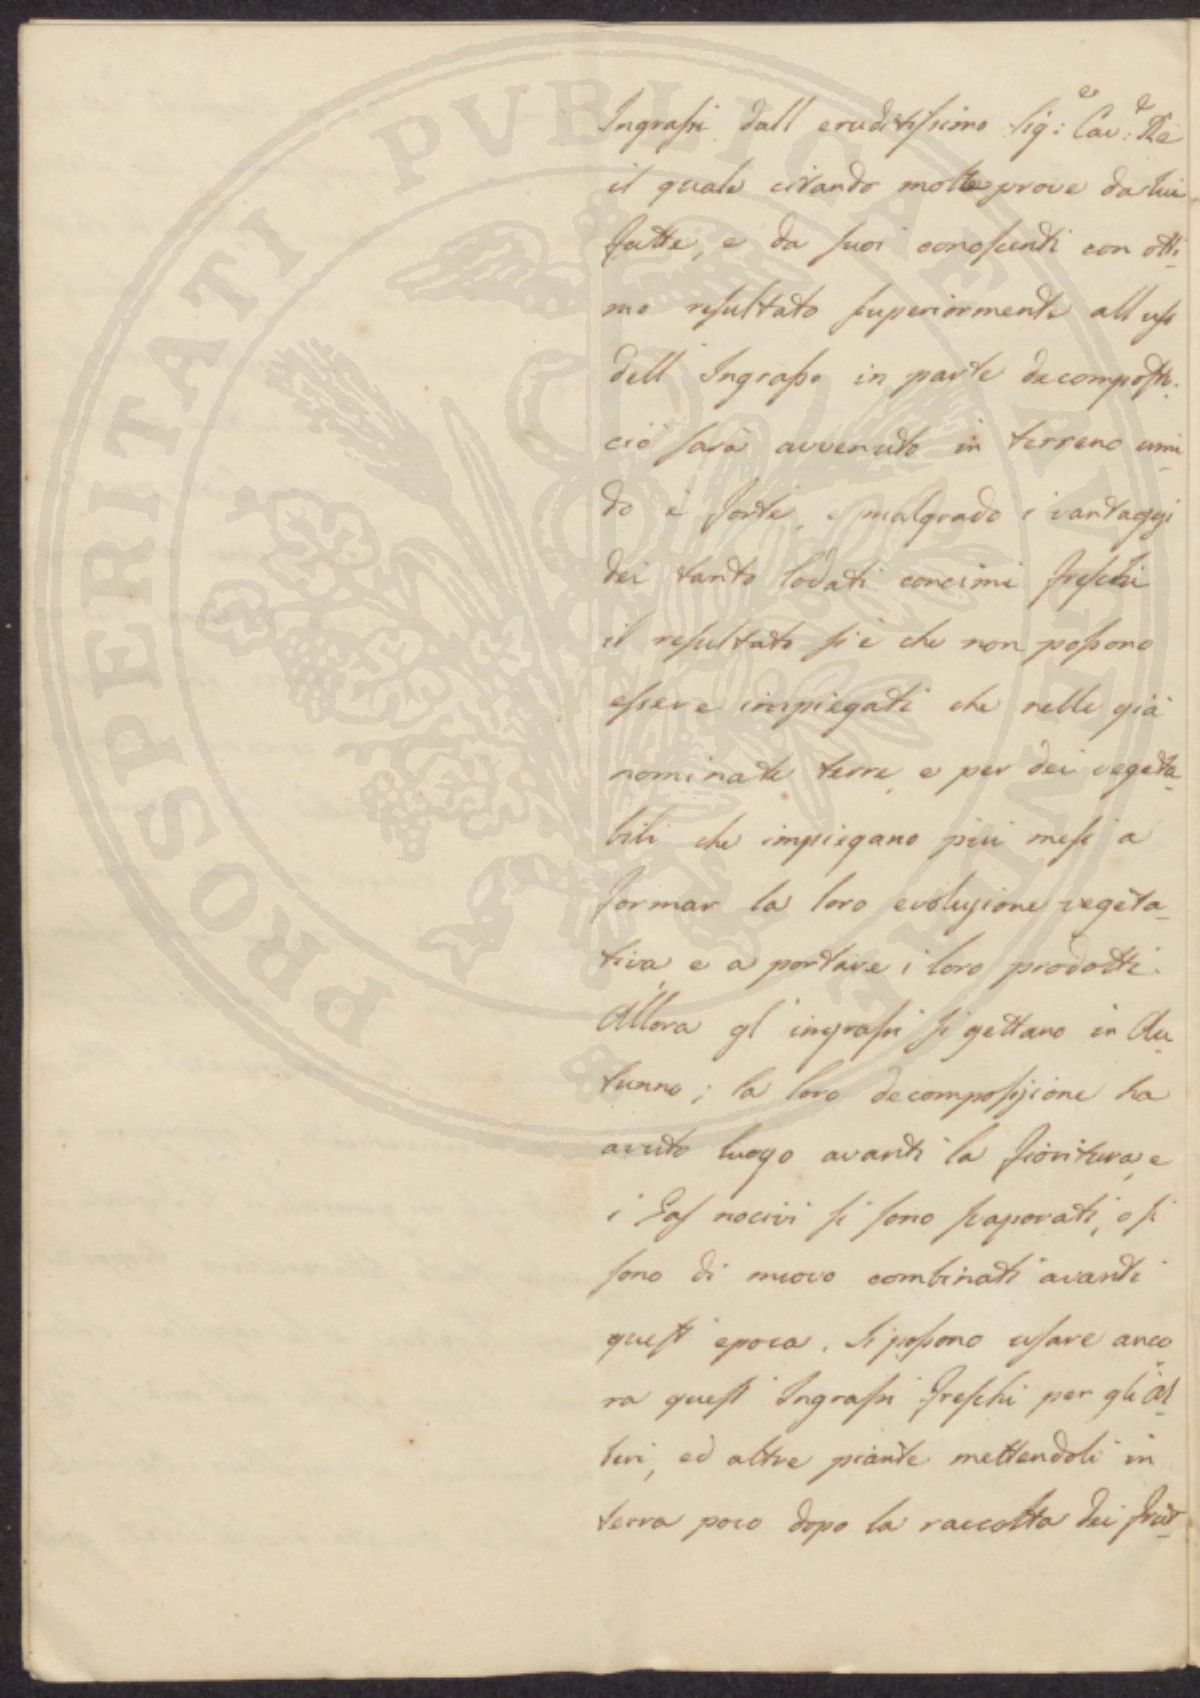 Ingrassi dall eruditissimo Sig:e Cav:e Re
il quale citando molte prove da lui
fatte, e da suoi conoscenti con otti-
mo resultato superiormente all uso
dell Ingrasso in parte decomposto.
ciò sarà avvenuto in terreno umi-
do e forte, e malgrado i vantaggi
dei tanto lodati concimi freschi
il resultato si è che non possono
essere impiegati che nelle già
nominate terre, e per dei vegeta-
bili che impiegano più mesi a
formar la loro evoluzione vegeta-
tiva e a portare i loro prodotti.
Allora gl' ingrassi si gettano in Au-
tunno; la loro decomposizione ha
avuto luogo avanti la fioritura, e
i Gas nocivi si sono svaporati, o si
sono di nuovo combinati avanti
quest' epoca. Si possono usare anco
ra questi Ingrassi freschi per gli Al-
beri, ed altre piante mettendoli in
terra poco dopo la raccolta dei frut-
PROSPERITATI PVBLICAE AVGENDAE